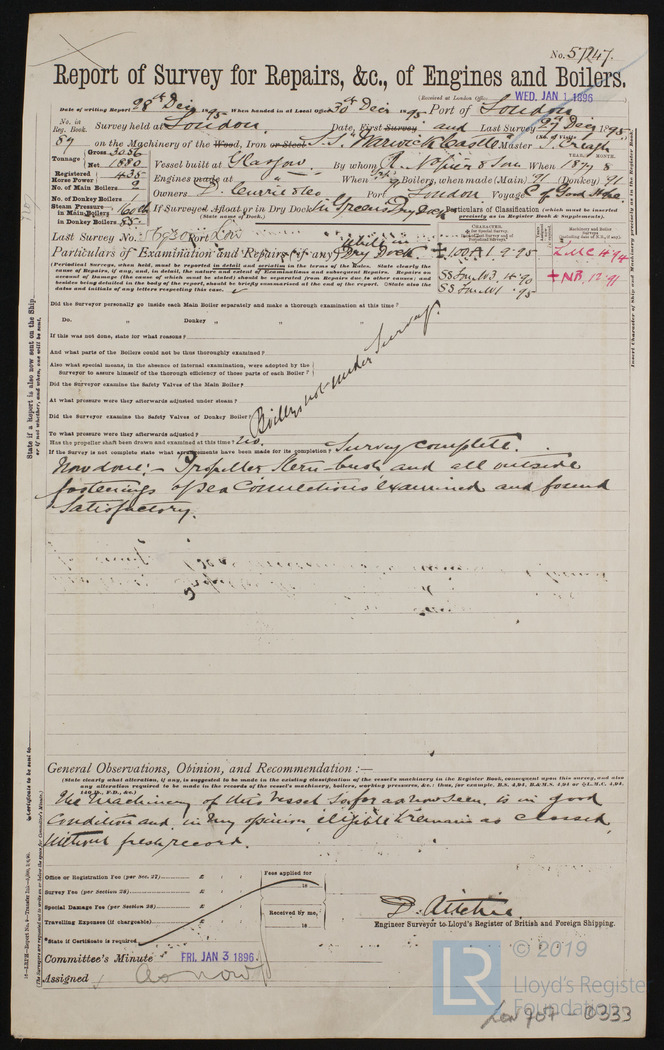 No. 57247.
Report of Survey for Repairs, &c., of Engines and Boilers.
(Received at London Office WED. JAN 1 1896)
Date of writing Report 28th Decr 1895 When handed in at Local Office 30th Decr 1895 Port of London
No. in Reg. Book. Survey held at London, Date, First Survey and Last Survey 27 Decr 1895
59 on the Machinery of the Wood, Iron or Steel S.S. Warwick Castle Master J. Creagh
Tonnage Gross 3056 Net 1880 Vessel built at Glasgow By whom R. Napier & Son When 1877 8
YEAR. MONTH.
Registered Horse Power 435 Engines made at " When 77 Boilers, when made (Main) 91 (Donkey) 91
No. of Main Boilers 2
No. of Donkey Boilers 1 Owners D. Currie & Co Port London Voyage C. of Good Hope
Steam Pressure in Main Boilers 160 lb in Donkey Boilers 85 If Surveyed Afloat or in Dry Dock In Greens Dry Dock
(State name of Dock.)
Particulars of Classification (which must be inserted precisely as in Register Book & Supplements).
Last Survey No. 56930 Port Lon
Particulars of Examination and Repairs (if any) Whilst in Dry Dock
(Periodical Surveys, when held, must be reported in detail and seriatim in the terms of the Rules. State clearly the
cause of Repairs, if any, and, in detail, the nature and extent of Examinations and subsequent Repairs. Repairs on
account of Damage (the cause of which must be stated) should be separated from Repairs due to other causes; and
besides being detailed in the body of the report, should be briefly summarised at the end of the report. State also the
dates and initials of any letters respecting this case.
100A1 9.95
SS Lon No3 4.90
SS Lon No1 .95
LMC 4.94
NB. 12.91
Did the Surveyor personally go inside each Main Boiler separately and make a thorough examination at this time?
Do. " Donkey " " "
If this was not done, state for what reasons?
And what parts of the Boilers could not be thus thoroughly examined?
Also what special means, in the absence of internal examination, were adopted by the
Surveyor to assure himself of the thorough efficiency of those parts of each Boiler?
Did the Surveyor examine the Safety Valves of the Main Boiler?
At what pressure were they afterwards adjusted under steam?
Did the Surveyor examine the Safety Valves of Donkey Boiler?
To what pressure were they afterwards adjusted?
Boilers not under Survey.
Has the propeller shaft been drawn and examined at this time? No.
If the Survey is not complete state what arrangements have been made for its completion? Survey complete.
Now done:- Propeller Stern-bush and all outside
fastenings of sea connections examined and found
Satisfactory.
General Observations, Opinion, and Recommendation :—
(State clearly what alteration, if any, is suggested to be made in the existing classification of the vessel's machinery in the Register Book, consequent upon this survey, and also
any alteration required to be made in the records of the vessel's machinery, boilers, working pressures, &c.: thus, for example, B.S. 4,94, B.&M.S. 4,94 or L.M.C. 4,94,
140 lb., F.D., &c.)
The Machinery of this Vessel so far as now seen, is in good
Condition and in my opinion eligible to remain as classed
Without fresh record.
Office or Registration Fee (per Sec. 27) £
Survey Fee (per Section 28) £
Special Damage Fee (per Section 28) £
Travelling Expenses (if chargeable) £
Fees applied for
18
Received by me,
18
*State if Certificate is required
D. Ritchie
Engineer Surveyor to Lloyd's Register of British and Foreign Shipping.
Committee's Minute FRI. JAN 3 1896
Assigned As now
State if a Report is also now sent on the Ship,
or if not whether, and when, one will be sent.
Insert Character of Ship and Machinery precisely as in the Register Book.
Certificate to be sent to
(The Surveyors are requested not to write on or below the space for Committee's Minute.)
LR
© 2019
Lloyd's Register
Foundation
Lon 707 - 0333